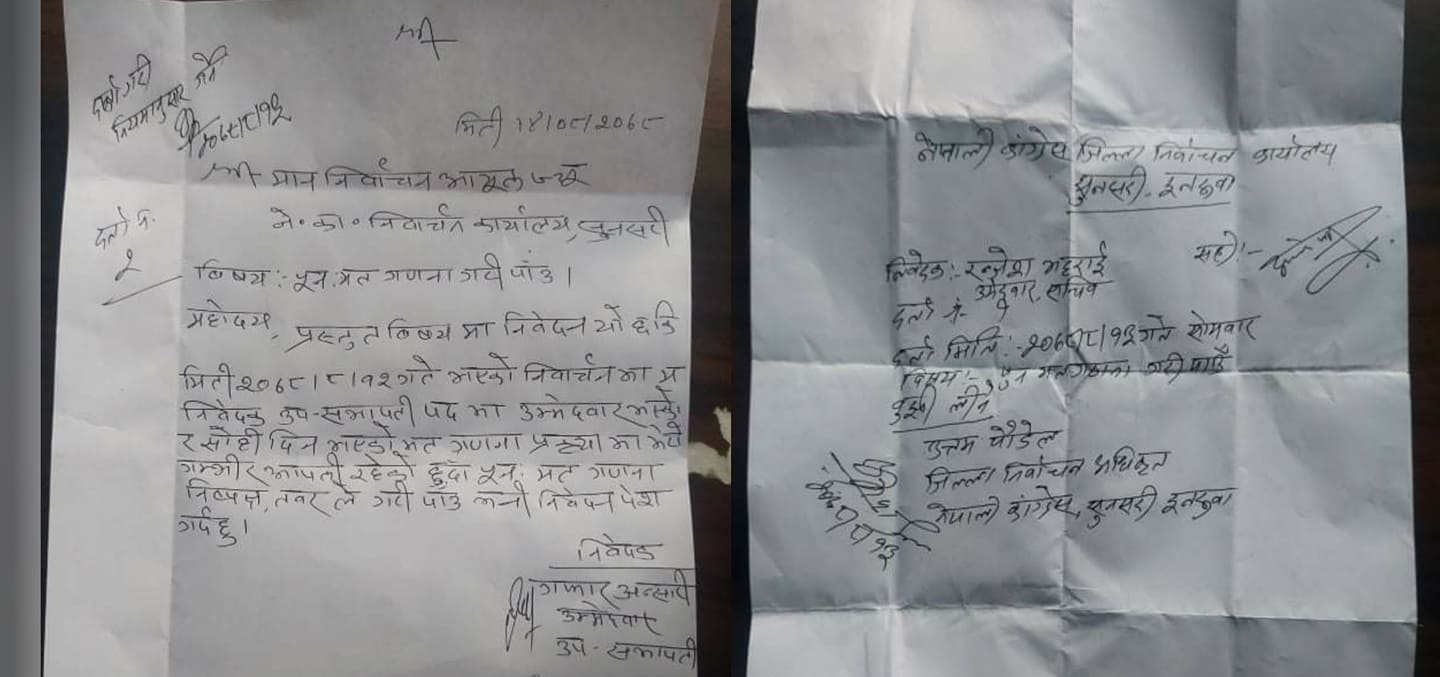 श्री
दर्ता गरी
नियमानुसार गर्ने
२०७८/८/१३
मिती १४/०८/२०७८
श्री मान निर्वाचन आयुक्त ज्यू
ने. का. निर्वाचन कार्यालय, सुनसरी
दर्ता नं.
२
विषय: पून: मत गणना गरी पाउ ।
महोदय,
प्रस्तुत विषय मा निवेदन यो छ कि
मिती २०७८/८/१२ गते भएको निर्वाचन मा म
निवेदक उप-सभापती पद मा उम्मेदवार भएको
र सोही दिन भएको मत गणना प्रक्रया मा मेरो
गम्भीर आपती रहेको हुदा पून: मत गणना
निष्पक्ष तवर ले गरी पाउ भनी निवेदन पेश
गर्दछु ।
निवेदक
गफार अन्सारी
उम्मेदवार
उप-सभापती
नेपाली कांग्रेस जिल्ला निर्वाचन कार्यालय
सुनसरी, इनरुवा
सही:-
निवेदक:- भट्टराई
उमेद्वार, सचिव
दर्ता नं. १
दर्ता मिति:- २०७८/८/१३ गते सोमवार
विषय:- पुन मतगणना गरी पाउँ
बुझी लीने
उत्तम पौडेल
जिल्ला निर्वाचन अधिकृत
नेपाली कांग्रेस, सुनसरी इनरुवा